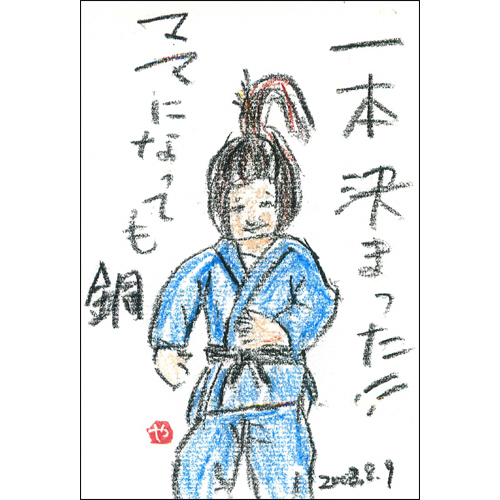 一本決まった!!
ママになっても
銅
2008.8.9
や